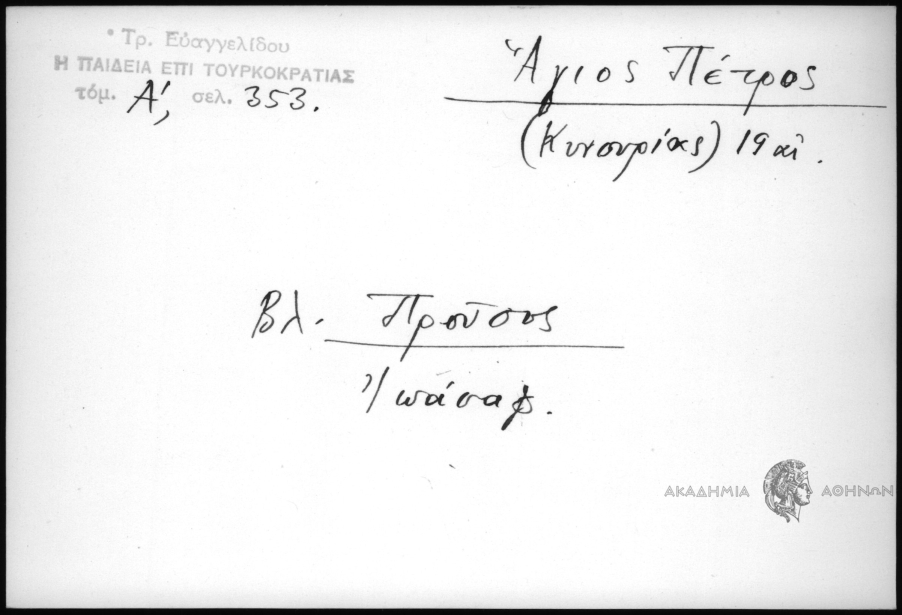 Τρ. Εὐαγγελίδου
Η ΠΑΙΔΕΙΑ ΕΠΙ ΤΟΥΡΚΟΚΡΑΤΙΑΣ
τόμ. Α', σελ. 353.
Ἅγιος Πέτρος
(Κυνουρίας) 19 αἰ.
Βλ. Προῦσος
Ἰωάσαφ.
ΑΚΑΔΗΜΙΑ ΑΘΗΝΩΝ